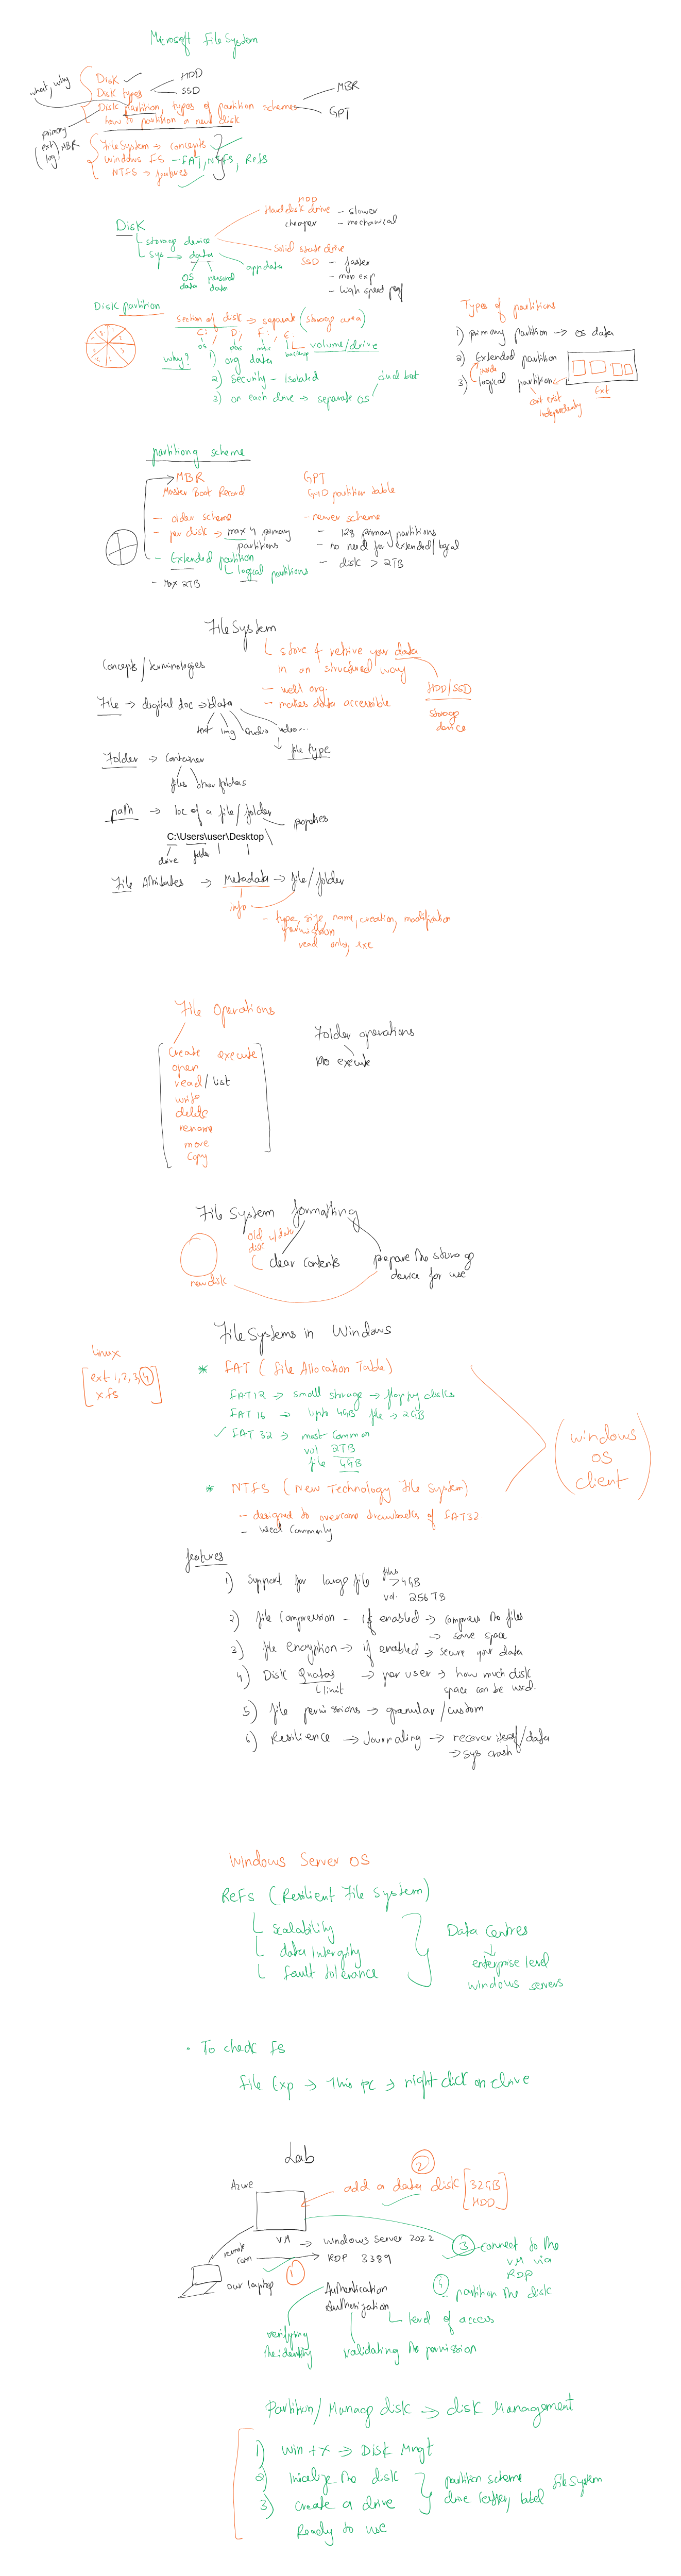 Microsoft File System
Disk
HDD
Disk types
SSD
what, why
Disk partition, types of partition schemes
MBR
GPT
how to partition a new disk
primary
ext
log
MBR
File System → concepts
Windows FS - FAT, NTFS, ReFS
NTFS → features
Disk
storage device
sys → data
OS data
personal data
app data
HDD
Hard disk drive - slower
cheaper - mechanical
Solid state drive
SSD - faster
- more exp
- high speed perf
Disk partition
section of disk → separate (storage area)
C: D: F: E:
OS
backup
volume/drive
why?
1) org data
2) security - isolated
3) on each drive → separate OS
dual boot
Types of partitions
1) primary partition → OS data
2) Extended partition
inside
3) logical partition
can't exist independently
Ext
partitiong scheme
MBR
Master Boot Record
- older scheme
- per disk → max 4 primary partitions
- Extended partition
logical partitions
- Max 2TB
GPT
GUID partition table
- newer scheme
- 128 primary partitions
- no need for extended/logical
- disk > 2TB
File System
store & retrive your data
in an structured way
- well org.
- makes data accessible
HDD/SSD
storage device
Concepts / terminologies
File → digital doc → data
text img Audio video...
file type
Folder → container
files other folders
path → loc of a file/folder
properties
C:\Users\user\Desktop\
drive
folder
File Attributes → Metadata → file/folder
info
- type, size, name, creation, modification
permission
read only, exe
File Operations
create execute
open
read/list
write
delete
rename
move
copy
Folder operations
no execute
File System formatting
old w/data disk
clear contents
prepare the storage device for use
new disk
File Systems in Windows
linux
ext 1,2,3,4
xfs
* FAT (File Allocation Table)
FAT12 → small storage → floppy disks
FAT 16 → Upto 4GB file → 2GB
✓ FAT 32 → most common
vol 2TB
file 4GB
* NTFS (New Technology File System)
- designed to overcome drawbacks of FAT32.
- used commonly
(windows OS client)
features
1) support for large file
files >4GB
vol. 256 TB
2) file compression - if enabled → compress the files
→ save space
3) file encryption → if enabled → secure your data
4) Disk Quotas → per user → how much disk space can be used.
limit
5) file permissions → granular/custom
6) Resilience → Journaling → recover itself/data
→ sys crash
Windows Server OS
ReFs (Resilient File System)
scalability
data Intergity
fault tolerance
Data Centres
enterprise level
windows servers
• To check fs
file Exp → This pc → right click on drive
Lab
Azure
2
add a data disk [32GB HDD]
VM → windows server 2022
remote conn → RDP 3389
our laptop
1
3 connect to the VM via RDP
4 partition the disk
Authentication
Authorization
level of access
verifying the identity
validating the permission
Partition/Manage disk → disk Management
1) win + X → Disk Mngt
2) Inicalize the disk
3) create a drive
partition scheme
drive letter, label
file system
Ready to use